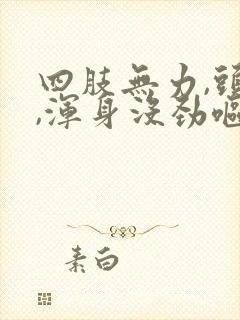 四肢無力,頭
,渾身沒勁嘔
素白